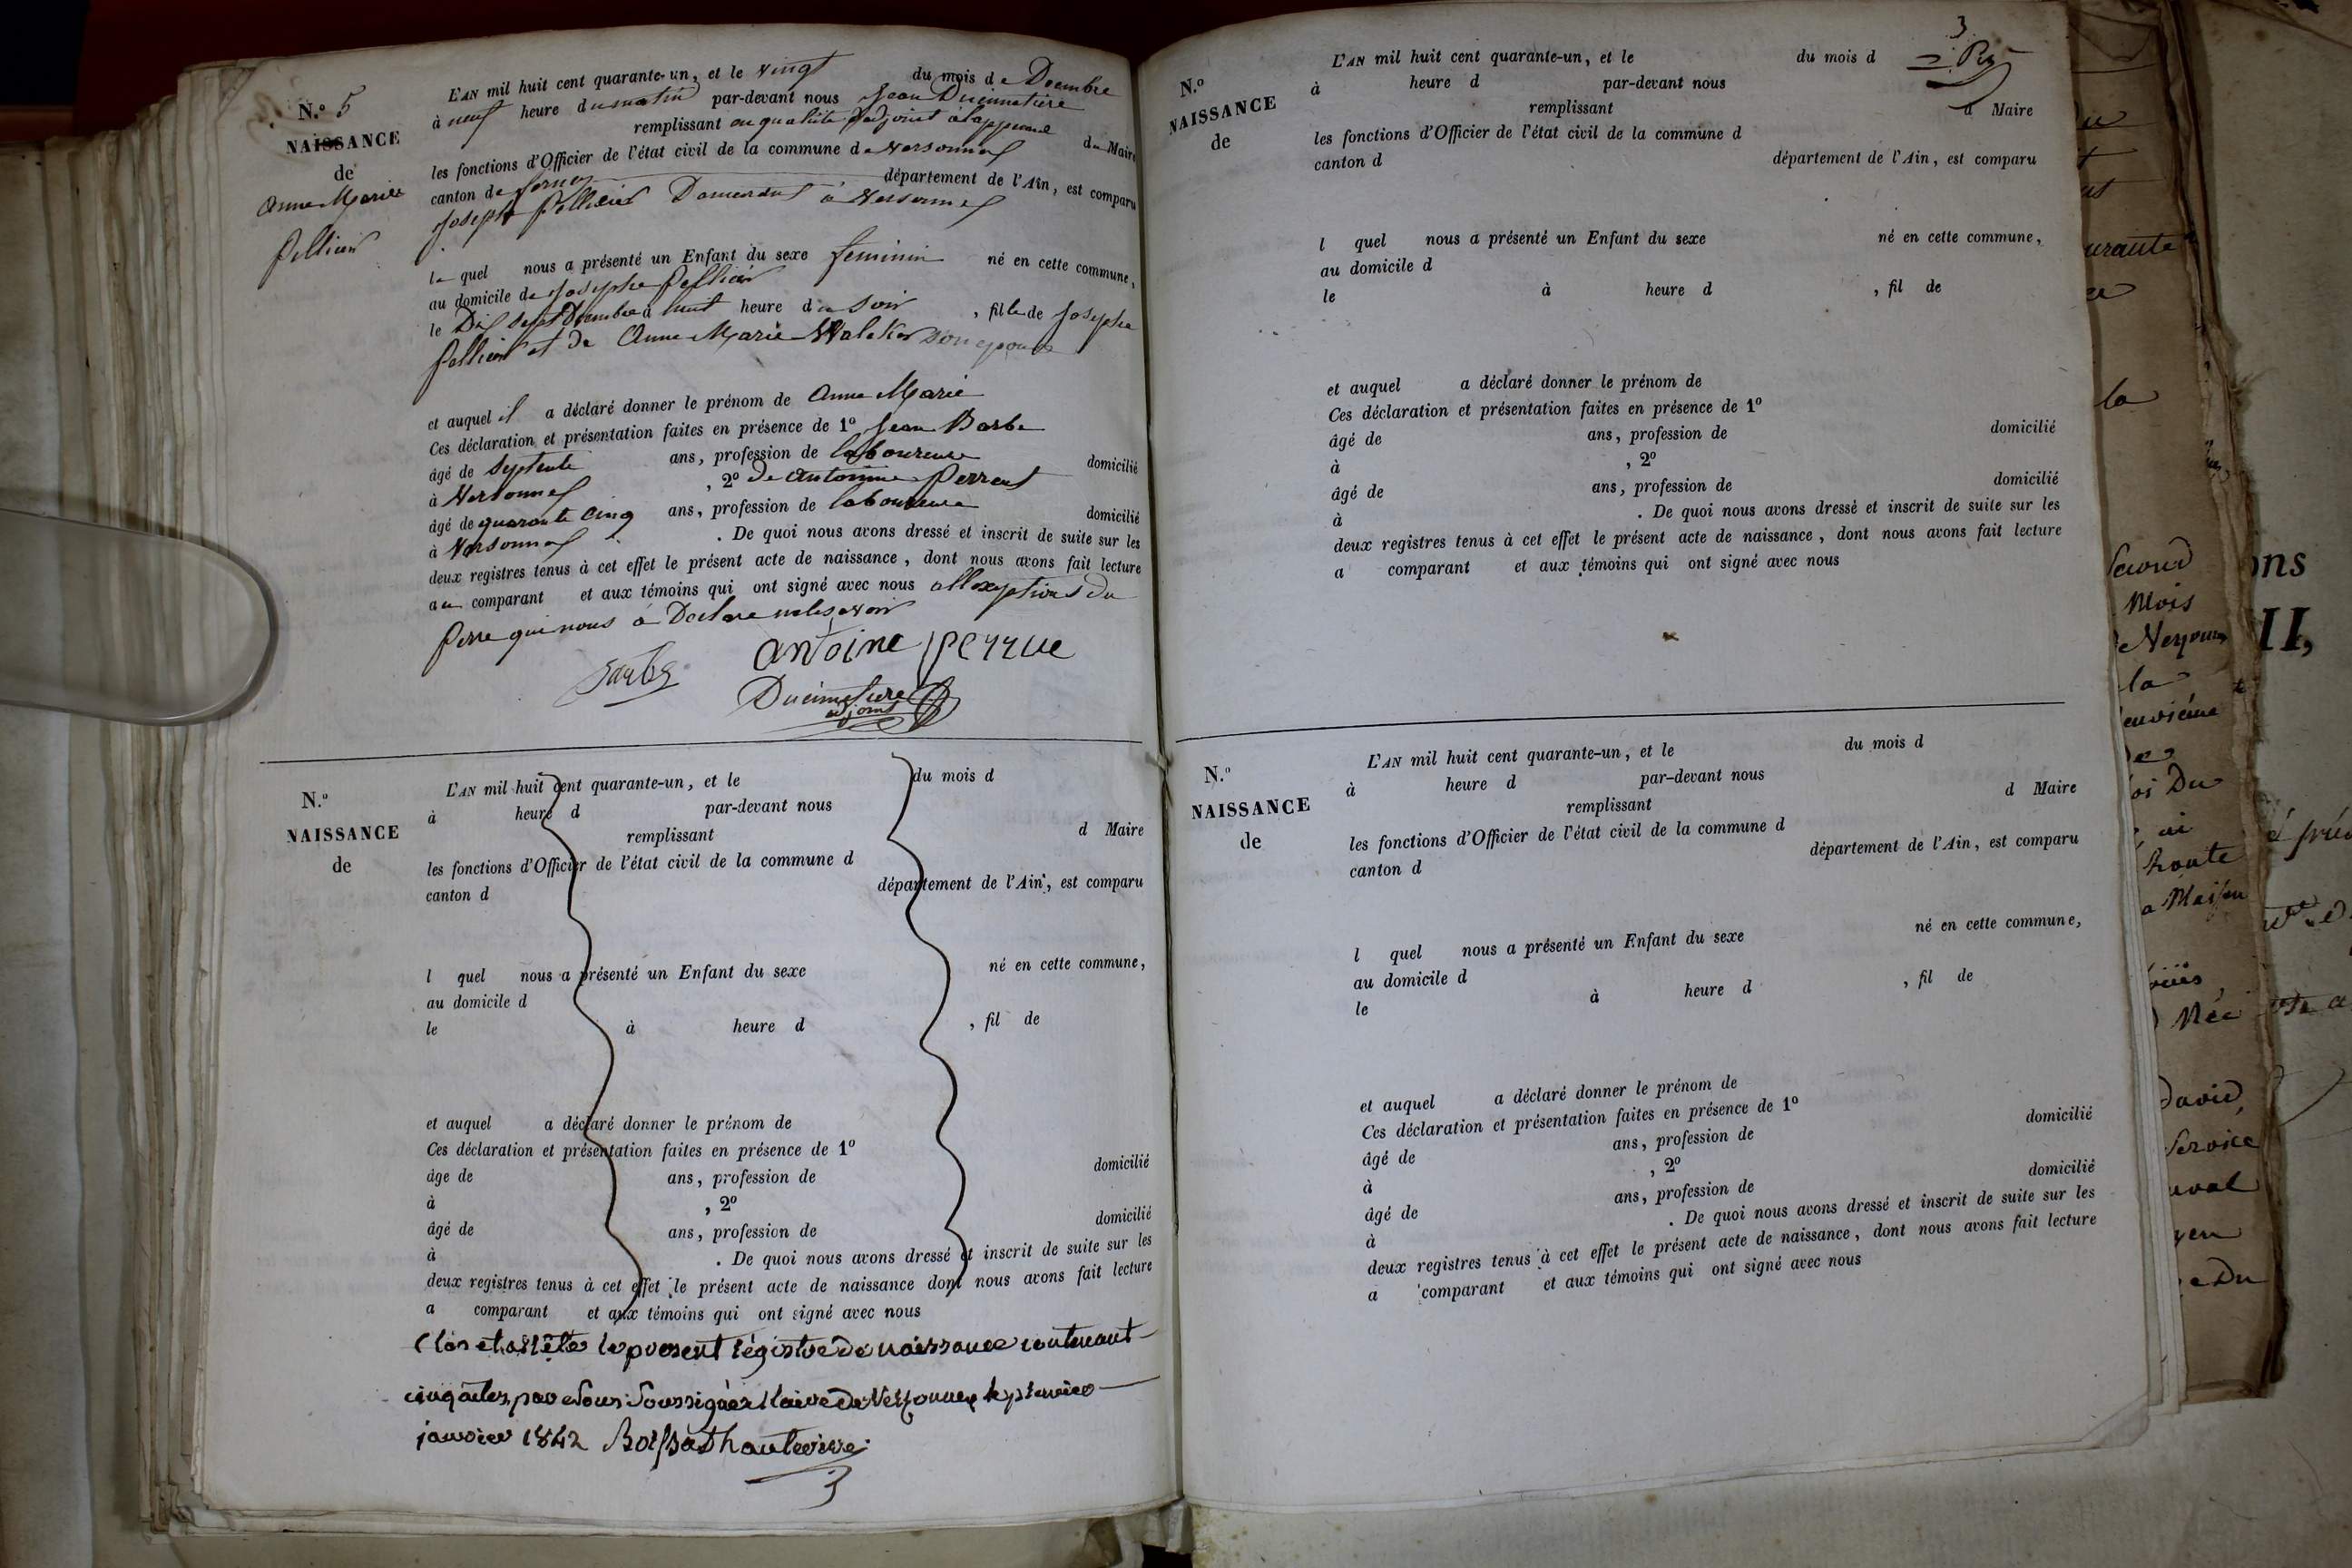 N.º 5
NAISSANCE
de
Anne Marie
Pellicier
L'AN mil huit cent quarante-un, et le vingt du mois de Decembre
à neuf heure du matin par-devant nous Jean Ducimetière
remplissant en qualité d'adjoint du Maire
les fonctions d'Officier de l'état civil de la commune de Versonnex
canton de ferney département de l'Ain, est comparu
Joseph à Versonnex
le quel nous a présenté un Enfant du sexe feminin né en cette commune,
au domicile de Josephe
le Dix sept Decembre à huit heure du soir, fille de Josephe
et de Anne Marie Walker son epouse
et auquel il a déclaré donner le prénom de Anne Marie
Ces déclaration et présentation faites en présence de 1º Jean Barbe
âgé de septente ans, profession de laboureure domicilié
à Versonnex, 2º de antoinne Perrent
âgé de quarante cinq ans, profession de laboureure domicilié
à Versonnex. De quoi nous avons dressé et inscrit de suite sur les
deux registres tenus à cet effet le présent acte de naissance, dont nous avons fait lecture
au comparant et aux témoins qui ont signé avec nous du
perre qui nous à Declare
antoine perrue
Ducimetiere
adjoint
N.º
NAISSANCE
de
L'AN mil huit cent quarante-un, et le du mois d
à heure d par-devant nous
remplissant d Maire
les fonctions d'Officier de l'état civil de la commune d
canton d département de l'Ain, est comparu
l quel nous a présenté un Enfant du sexe né en cette commune,
au domicile d
le à heure d , fil de
et auquel a déclaré donner le prénom de
Ces déclaration et présentation faites en présence de 1º
âge de ans, profession de domicilié
à , 2º
âgé de ans, profession de domicilié
à . De quoi nous avons dressé et inscrit de suite sur les
deux registres tenus à cet effet le présent acte de naissance dont nous avons fait lecture
a comparant et aux témoins qui ont signé avec nous
Clos et arrêté le present régistre de naissance contenant
cinq actes, par Nous Soussigné Maire de Versonnex le premier
janvier 1842
3
N.º
NAISSANCE
de
L'AN mil huit cent quarante-un, et le du mois d
à heure d par-devant nous
remplissant d Maire
les fonctions d'Officier de l'état civil de la commune d
canton d département de l'Ain, est comparu
l quel nous a présenté un Enfant du sexe né en cette commune,
au domicile d
le à heure d , fil de
et auquel a déclaré donner le prénom de
Ces déclaration et présentation faites en présence de 1º
âgé de ans, profession de domicilié
à , 2º
âgé de ans, profession de domicilié
à . De quoi nous avons dressé et inscrit de suite sur les
deux registres tenus à cet effet le présent acte de naissance, dont nous avons fait lecture
a comparant et aux témoins qui ont signé avec nous
N.º
NAISSANCE
de
L'AN mil huit cent quarante-un, et le du mois d
à heure d par-devant nous
remplissant d Maire
les fonctions d'Officier de l'état civil de la commune d
canton d département de l'Ain, est comparu
l quel nous a présenté un Enfant du sexe né en cette commune,
au domicile d
le à heure d , fil de
et auquel a déclaré donner le prénom de
Ces déclaration et présentation faites en présence de 1º
âgé de ans, profession de domicilié
à , 2º
âgé de ans, profession de domicilié
à . De quoi nous avons dressé et inscrit de suite sur les
deux registres tenus à cet effet le présent acte de naissance, dont nous avons fait lecture
a comparant et aux témoins qui ont signé avec nous
la
Second
Mois
la
Du
Maison
David
Service
Du
II,